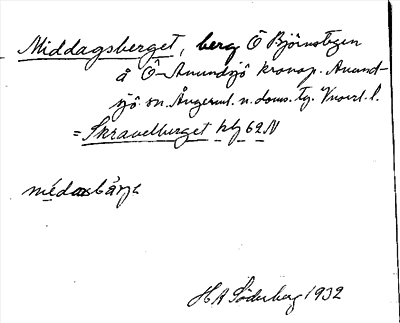 Middagsberget, berg Ö Björnstigen
å Ö-Anundsjö kronop. Anund-
sjö sn. Ångerml. n. doms. tg. Vnorrl. l.
= Skravelberget kbl 62 N
H A Söderberg 1932